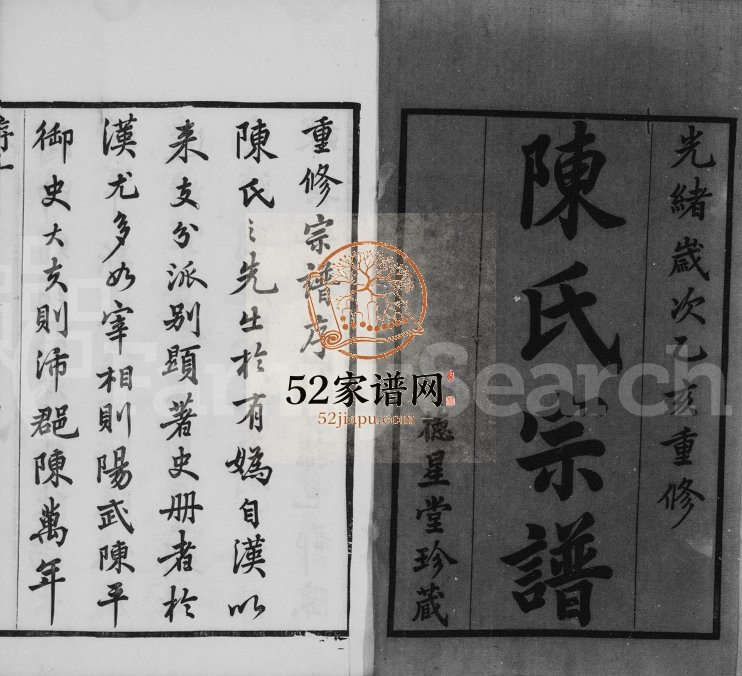 光緒歲次乙亥重修
陳氏宗譜
德星堂珍藏
重修宗譜序
陳氏之先出於有媯自漢以
来支分派别顕著史册者於
漢尤多如宰相則陽武陳平
御史大夫則沛郡陳萬年
52家谱网
52jiapu.com
FamilySearch